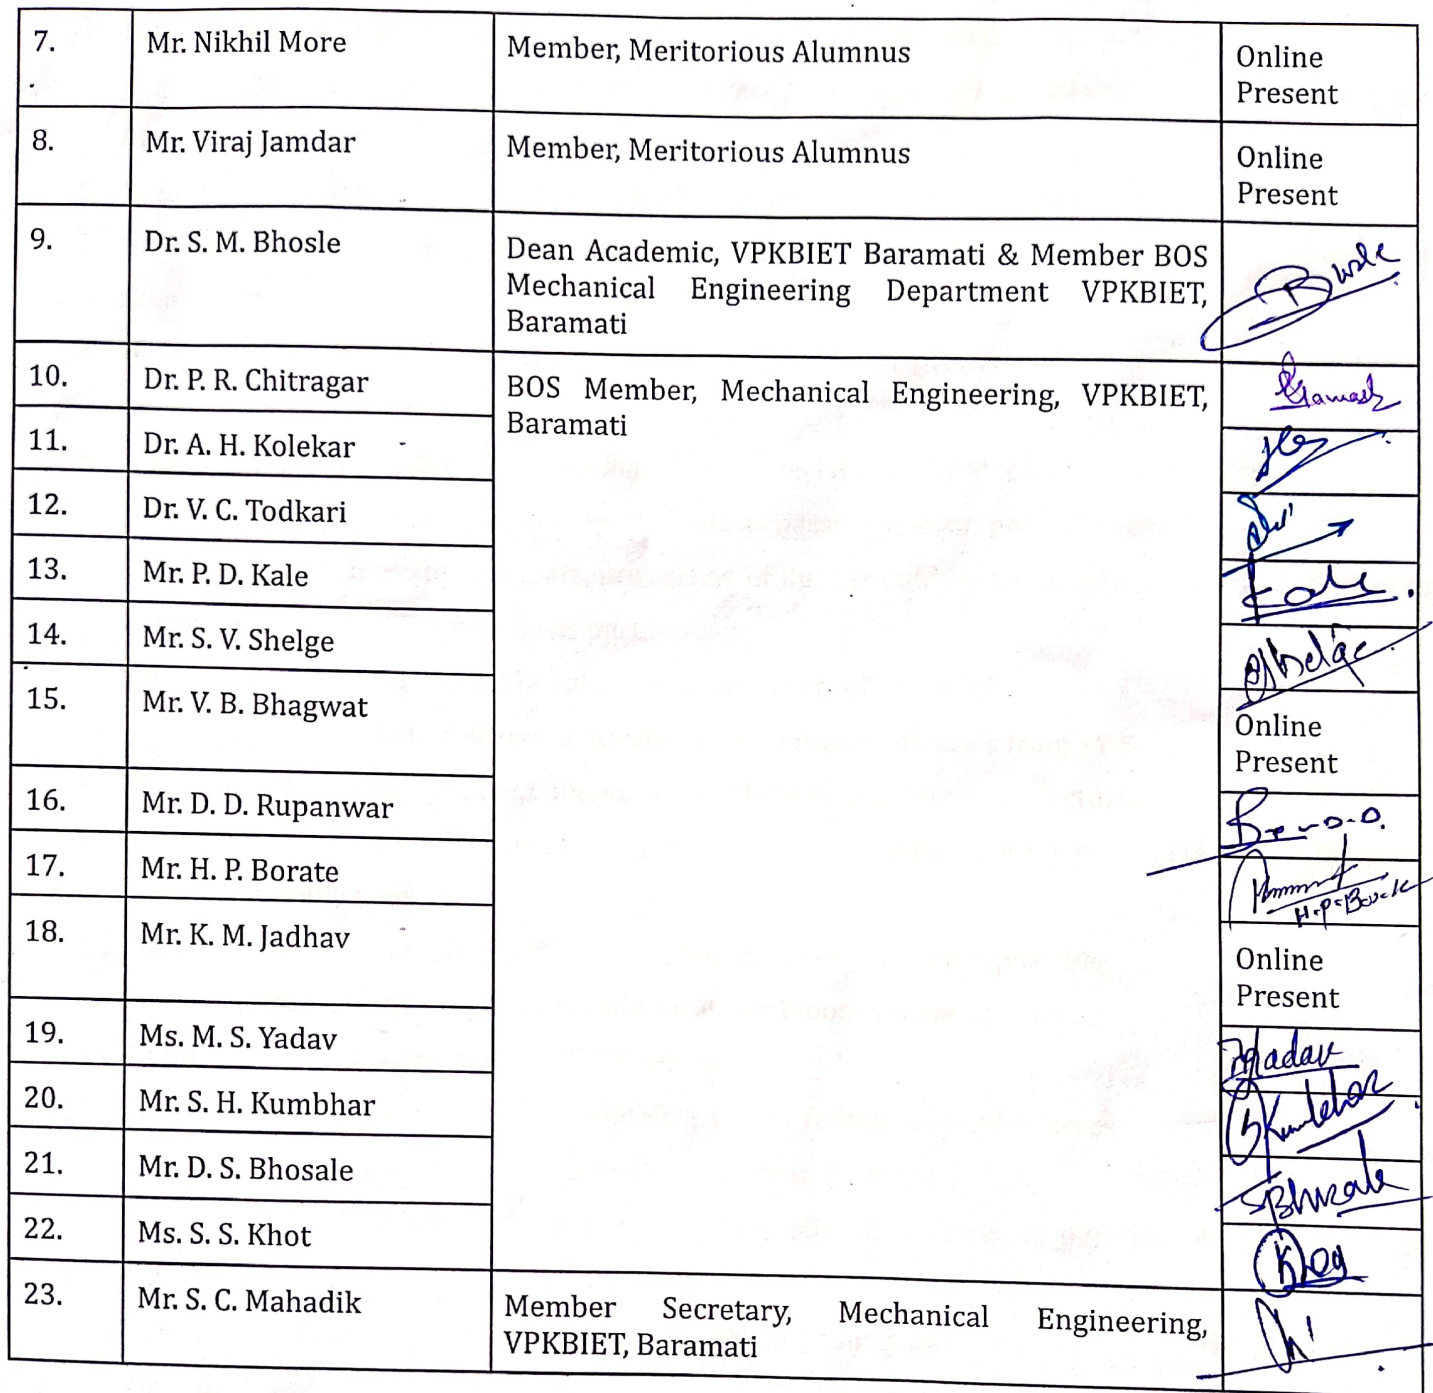 7. Mr. Nikhil More Member, Meritorious Alumnus Online
Present
8. Mr. Viraj Jamdar Member, Meritorious Alumnus Online
Present
9. Dr. S. M. Bhosle Dean Academic, VPKBIET Baramati & Member BOS
Mechanical Engineering Department VPKBIET,
Baramati
10. Dr. P. R. Chitragar BOS Member, Mechanical Engineering, VPKBIET,
Baramati
11. Dr. A. H. Kolekar
12. Dr. V. C. Todkari
13. Mr. P. D. Kale
14. Mr. S. V. Shelge
15. Mr. V. B. Bhagwat Online
Present
16. Mr. D. D. Rupanwar
17. Mr. H. P. Borate
18. Mr. K. M. Jadhav Online
Present
19. Ms. M. S. Yadav
20. Mr. S. H. Kumbhar
21. Mr. D. S. Bhosale
22. Ms. S. S. Khot
23. Mr. S. C. Mahadik Member Secretary, Mechanical Engineering,
VPKBIET, Baramati